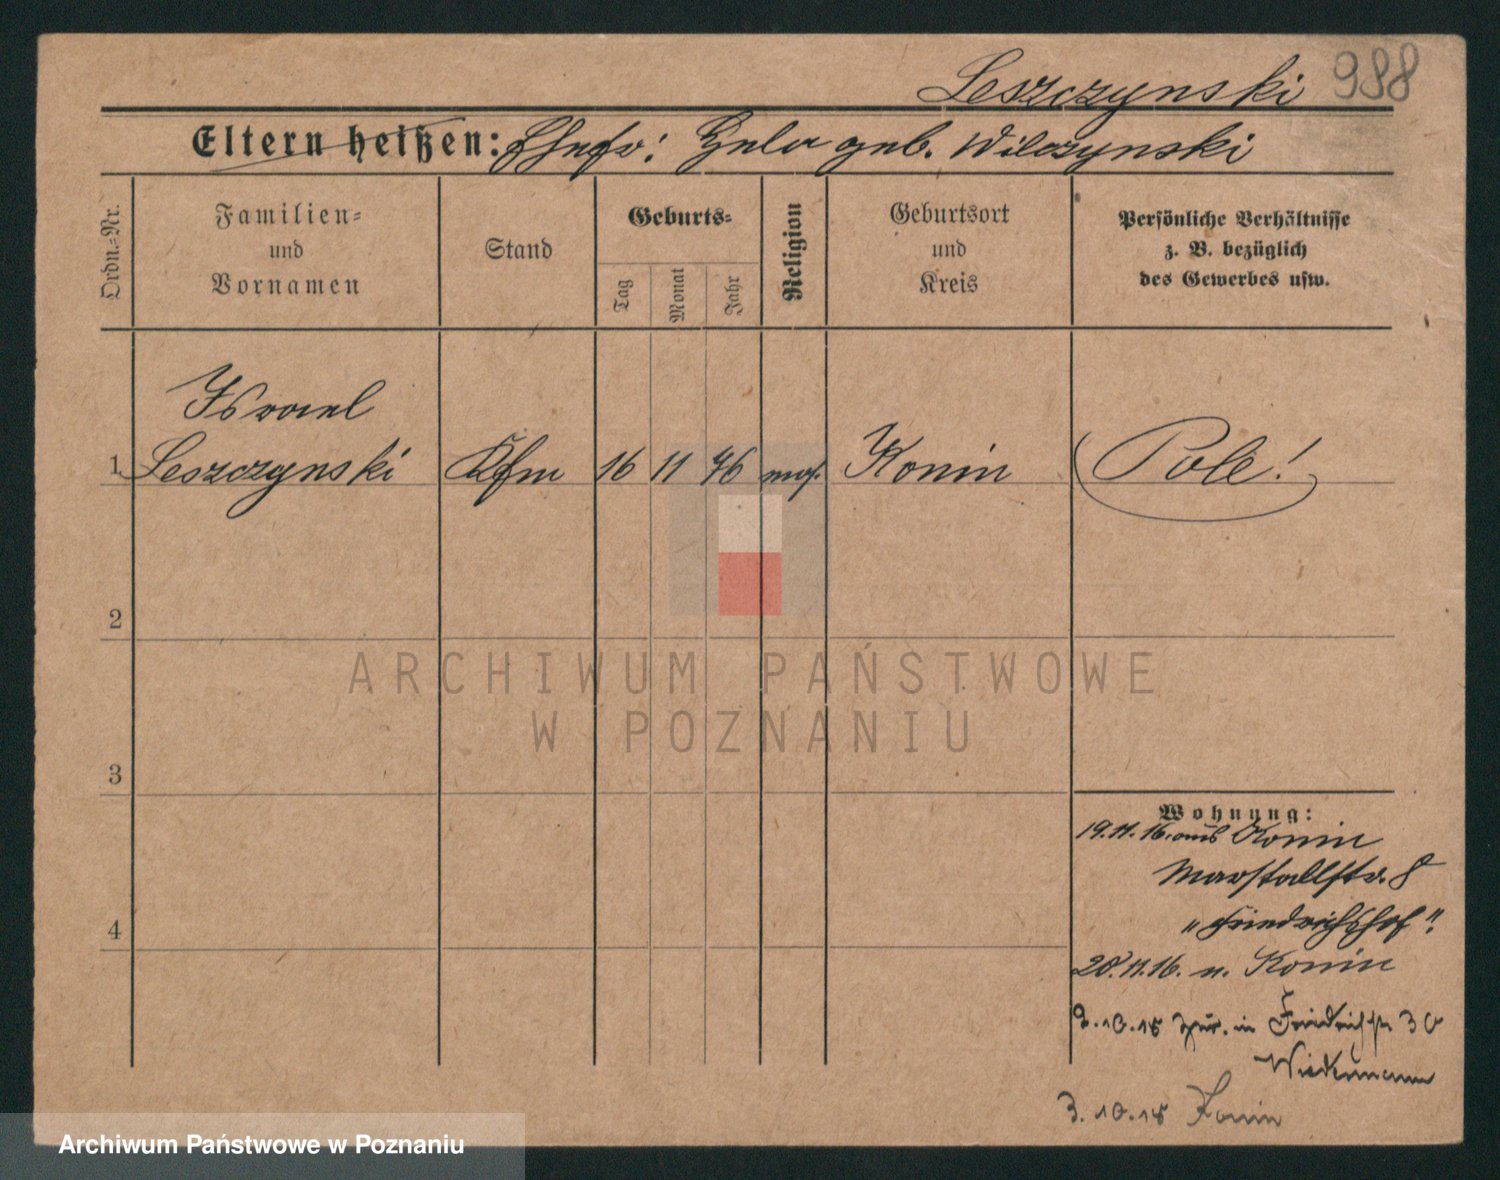 Leszczynski 988
Eltern heißen: Ehefr: Hela geb. Wilczynski
Ordn.=Nr.
Familien=
und
Vornamen
Stand
Geburts=
Tag
Monat
Jahr
Religion
Geburtsort
und
Kreis
Persönliche Verhältnisse
z. B. bezüglich
des Gewerbes usw.
Israel
1 Leszczynski Kfm 16 11 76 mos. Konin Pole!
2
3
4
ARCHIWUM PAŃSTWOWE
W POZNANIU
Wohnung:
19.11.16. aus Konin
Marstallstr. 8
"Friedrichshof".
28.11.16. n. Konin
2.10.18 zur. in Friedrichstr 30
Wiedermann
3.10.18 Konin
Archiwum Państwowe w Poznaniu